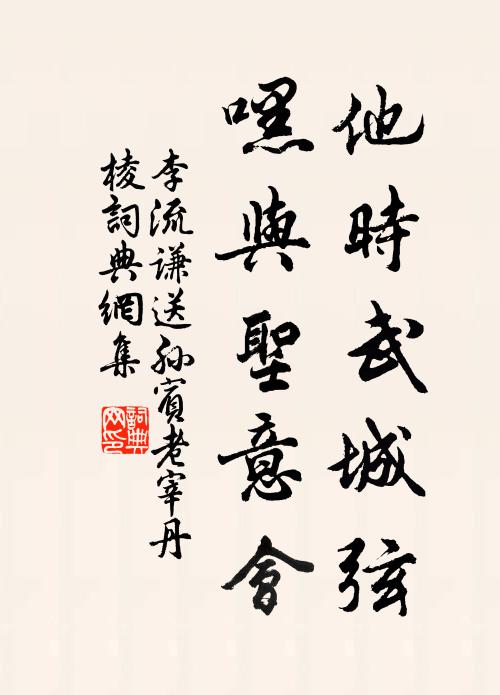 他時武城弦
嘿與聖意會
李流謙送孙賓老宰丹
棱詞典網集
詞典网印